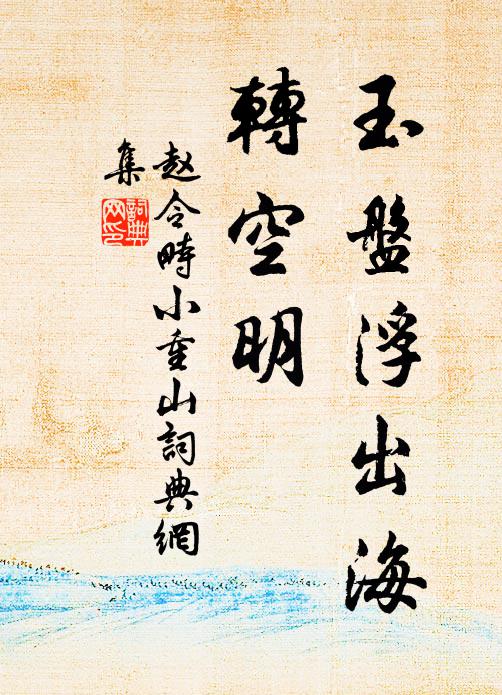 玉盤浮出海
轉空明
赵令畤小重山詞典網
集
詞典
网印